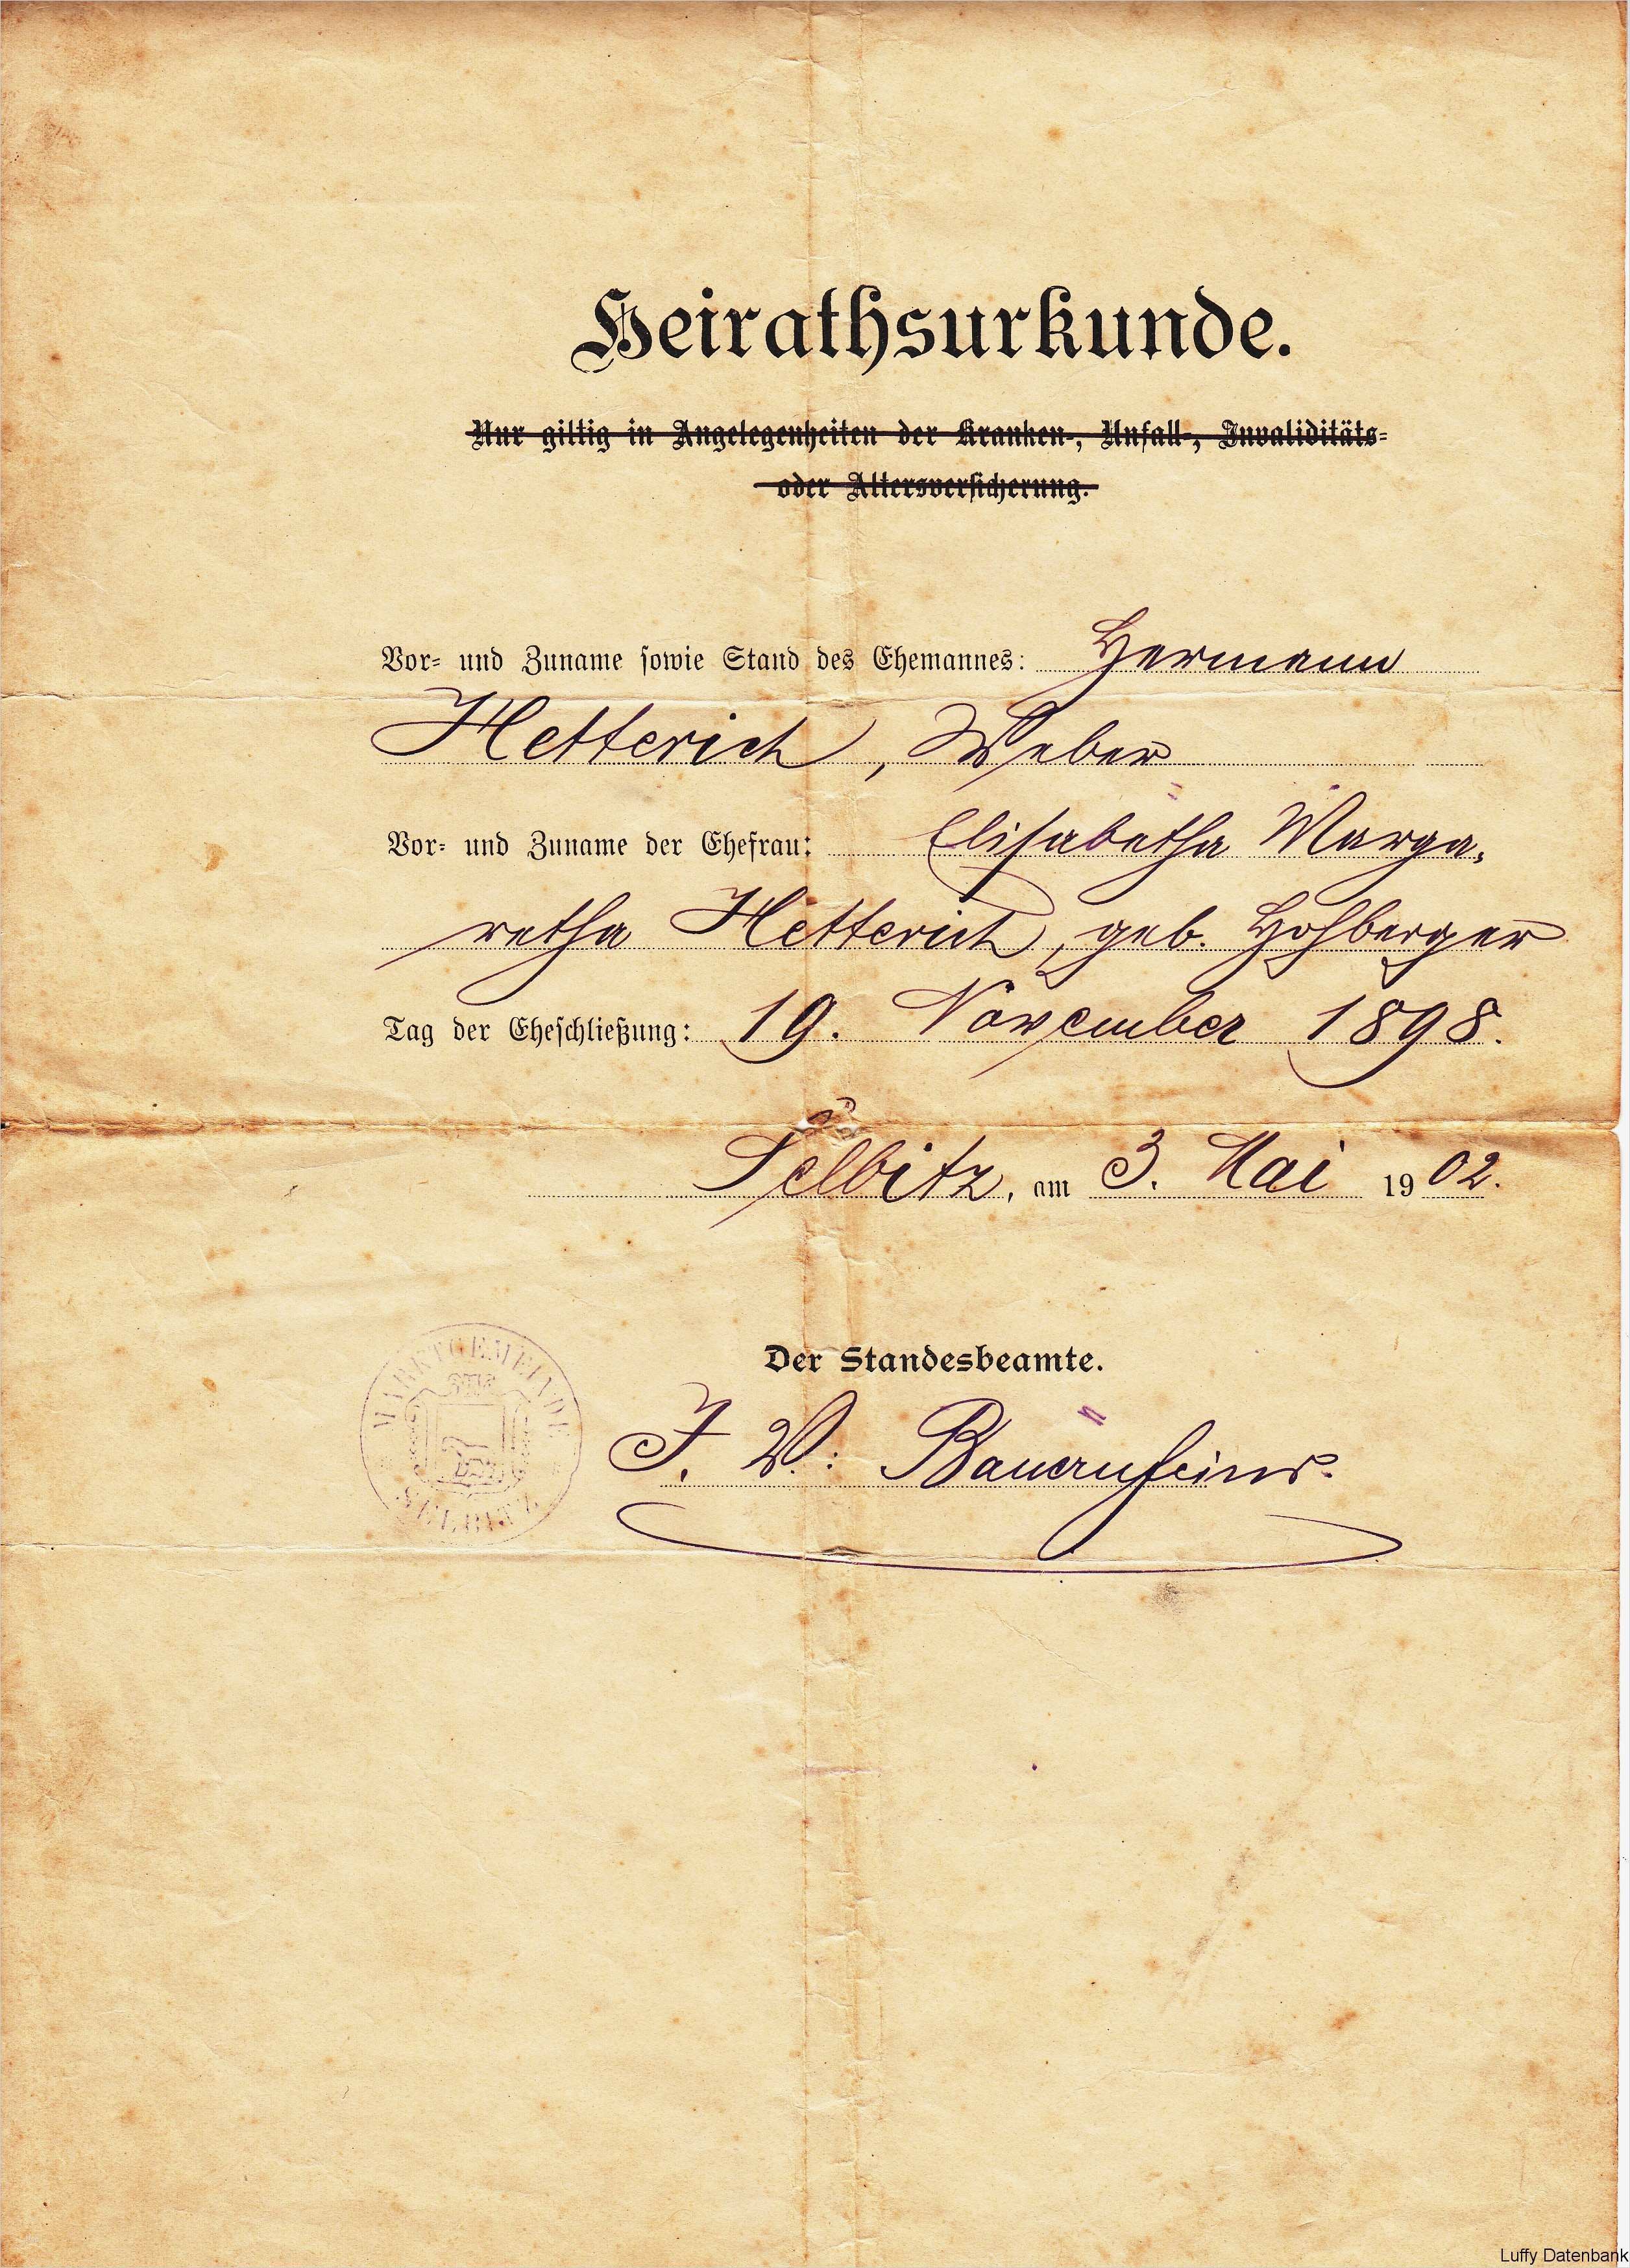 Heirathsurkunde.
Nur giltig in Angelegenheiten der Kranken-, Unfall-, Invaliditäts-
oder Altersversicherung.
Vor- und Zuname sowie Stand des Ehemannes: Hermann
Hetterich, Weber
Vor- und Zuname der Ehefrau: Elisabetha Marga-
retha Hetterich, geb. Hohberger
Tag der Eheschließung: 19. November 1898.
Selbitz, am 3. Mai 1902.
Der Standesbeamte.
MARKTGEMEINDE
SELBITZ
J. V.:
Luffy Datenbank